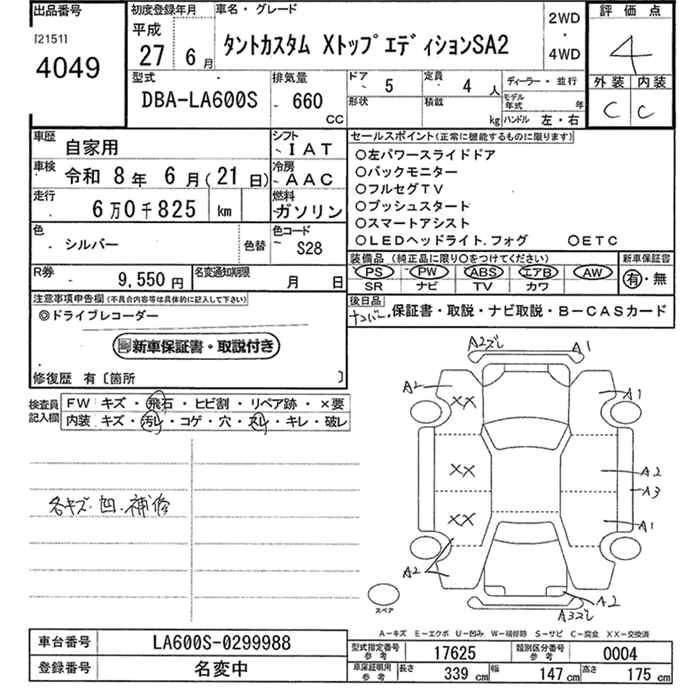 出品番号
[2151]
4049
初度登録年月
平成
27年 6月
車名・グレード
タントカスタム XトップエディションSA2
2WD
・
4WD
評価点
4
外装 内装
C C
型式
DBA-LA600S
排気量
660
CC
ドア
5
定員
4 人
形状
積載
kg
ディーラー・並行
モデル年式 年
ハンドル 左・右
車歴
自家用
シフト
IAT
車検
令和 8年 6月(21日)
冷房
AAC
走行
6万0千825 km
燃料
ガソリン
色
シルバー
色替
色コード
S28
R券
9,550円
名変通知期限
月 日
セールスポイント(正常に機能するものに限ります)
○左パワースライドドア
○バックモニター
○フルセグTV
○プッシュスタート
○スマートアシスト
○LEDヘッドライト.フォグ ○ETC
装備品 (純正品に限り○をつけてください)
PS PW ABS エアB AW
SR ナビ TV カワ
新車保証書
有・無
後日品
ナンバー,保証書・取説・ナビ取説・B-CASカード
注意事項申告欄(不具合内容等は具体的に記入して下さい)
◎ドライブレコーダー
新車保証書・取説付き
修復歴 有〔箇所 〕
検査員記入欄
FW キズ・飛石・ヒビ割・リペア跡・×要
内装 キズ・汚レ・コゲ・穴・スレ・キレ・破レ
各キズ.凹.補修
A2ズレ A1
A2 XX A1
XX A2
A3
XX A1
A2
A2
A3ズレ
スペア
A-キズ E-エクボ U-凹み W-補修跡 S-サビ C-腐食 XX-交換済
車台番号 LA600S-0299988
登録番号 名変中
型式指定番号 参考 17625
類別区分番号 参考 0004
車庫証明用 参考 長さ 339 cm 幅 147 cm 高さ 175 cm